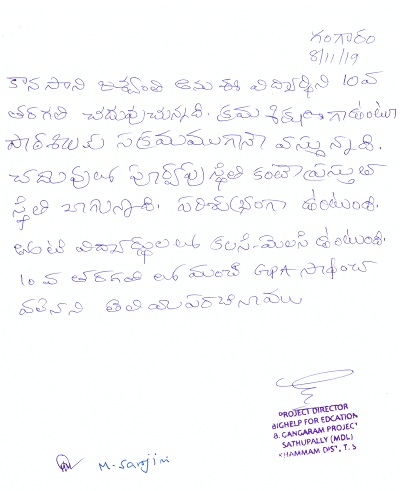 గంగారం
8/11/19
కానసాని జశ్వంతి అను ఈ విద్యార్థిని 10వ
తరగతి చదువుచున్నది. క్రమశిక్షణగా ఉంటూ
పాఠశాలకు సక్రమముగానే వస్తున్నది.
చదువులో పూర్వపు స్థితి కంటే ప్రస్తుత
స్థితి బాగున్నది. పరిశుభ్రంగా ఉంటుంది.
తోటి విద్యార్థులలో కలసి-మెలసి ఉంటుంది.
10వ తరగతి లో మంచి GPA సాధించ
వలెనని తెలియపరచినాము
PROJECT DIRECTOR
BIGHELP FOR EDCATION
B. GANGARAM PROJECT
SATHUPALLY (MDL)
KHAMMAM DIST. T.S
M. Sarojini